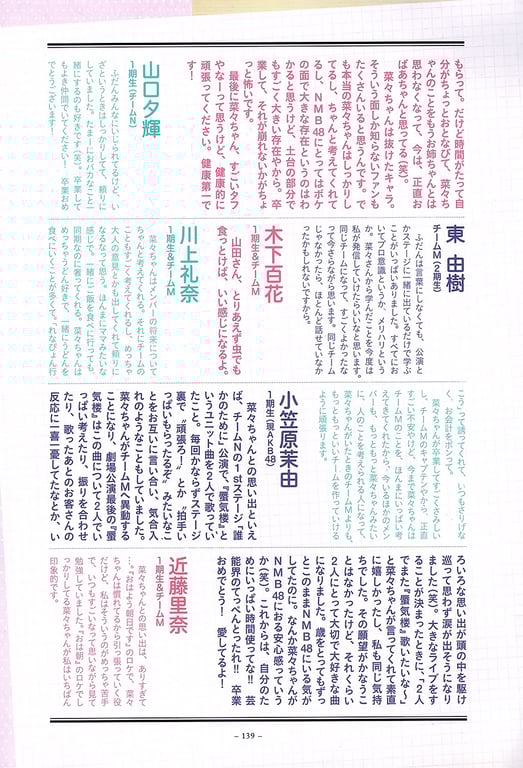 もらって。だけど時間がたって自
分がちょっとおとなびて、菜々ち
ゃんのことをもうお姉ちゃんとは
思わなくなって、今は、正直お
ばあちゃんと思ってる(笑)。
菜々ちゃんは抜けたキャラ。
そういう面しか知らないファンも
たくさんいると思うんです。で
も本当の菜々ちゃんはしっかりし
てるし、ちゃんと考えてくれて
るし、NMB48にとってはボケ
の面で大きな存在というのはわ
かると思うけど、土台の部分で
もすごく大きい存在やから。卒
業して、それが崩れないかがちょ
っと怖いです。
最後に菜々ちゃん、すごいタフ
やなーって思うけど、健康的に
頑張ってください。健康第一で
す!
山口夕輝
1期生(チームN)
ふだんみんなにいじられてるけど、い
ざというときはしっかりしてて、頼りに
していました。たまーにおバカなこと一
緒にするのも好きです(笑)。卒業して
もよき仲間でいてください! 卒業おめ
でとうございます!
東 由樹
チームM(2期生)
ふだんは言葉にしなくても、公演と
かステージに一緒に出ているだけで学ぶ
ことがいっぱいありました。すべてにお
いてプロ意識というか、メリハリという
か。菜々さんから学んだことを今度は
私が発信していけたらいいなと思います。
同じチームになって、すごくよかったな
って今さらながら思います。同じチーム
じゃなかったら、ほとんど話せていなか
ったかもしれないですから。
木下百花
1期生&チームM
山田さん、とりあえず虫でも
食っとけば、いい感じになるよ。
川上礼奈
1期生&チームM
菜々ちゃんはメンバーの将来について
ちゃんと考えてくれる。それにチームの
こともすごく考えてくれるし、めっちゃ
大人の意見とかも出してくれて頼りに
なるなって思う。ほんまにママみたいな
感じで。一緒にご飯を食べに行っても、
同期なのに奢ってくれる。菜々ちゃんは
めっちゃうどん好きで、一緒にうどんを
食べにいくことが多くて。「れなぴょん行
こうって誘ってくれて、いつもさりげな
く、お会計をポンって。
菜々さんが卒業してすごくさみしい
し、チームMのキャプテンやから、正直
すごい不安やけど、今まで菜々ちゃんは
チームMのことを、ほんまにいっぱい考
えてきてくれたから、今いるほかのメン
バーも、もっともっと菜々ちゃんみたい
に、人のことを考えられる人になって、
菜々ちゃんがいたときのチームMよりも、
もっともっといいチームを作っていける
ように頑張ります。
小笠原茉由
1期生(現AKB48)
菜々ちゃんとの思い出といえ
ば、チームNの1stステージ「誰
かのために」公演で、『蜃気楼』と
いうユニット曲を2人で歌ってい
たこと。毎回かならずステージ
裏で“頑張ろー”とか“拍手い
っぱいもらったるぞ”みたいなこ
とをお互いに言い合い、気合入
れのようなこともしていました。
菜々ちゃんがチームMへ異動する
ことになり、劇場公演最後の『蜃
気楼』はこの曲について2人でい
っぱい考えたり、振りを合わせ
たり、歌ったあとのお客さんの
反応に一喜一憂してたなとか、い
ろいろな思い出が頭の中を駆け
巡って思わず涙が出そうになり
ました(笑)。大きなライブをす
ることが決まったときに、「2人
でまた『蜃気楼』歌いたいな〜」
と菜々ちゃんが言ってくれて素直
に嬉しかったし、私も同じ気持
ちでした。その願望かなうこ
とはなかったけど、それくらい
2人にとって大切で大好きな曲
になりました。歳をとってもずっ
とこのままNMB48にいる気が
してたのに。なんか菜々ちゃんが
NMB48におる安心感っていう
か(笑)。これからは、自分のた
めにいっぱい時間使ってな!! 芸
能界のてっぺんとったれ!! 卒業
おめでとう! 愛してるよー!
近藤里奈
1期生&チームM
菜々ちゃんとの思い出は、ありすぎて
…。『おはよう朝日です』のロケで、菜々
ちゃんは慣れてるから引っ張っていく役
だけど、私はそういうのがめっちゃ苦手
で、いつもすごいなって思いながら見て
勉強していました。『おは朝』のロケで
しっかりしてる菜々ちゃんが私はいちばん
印象的です。
– 139 –